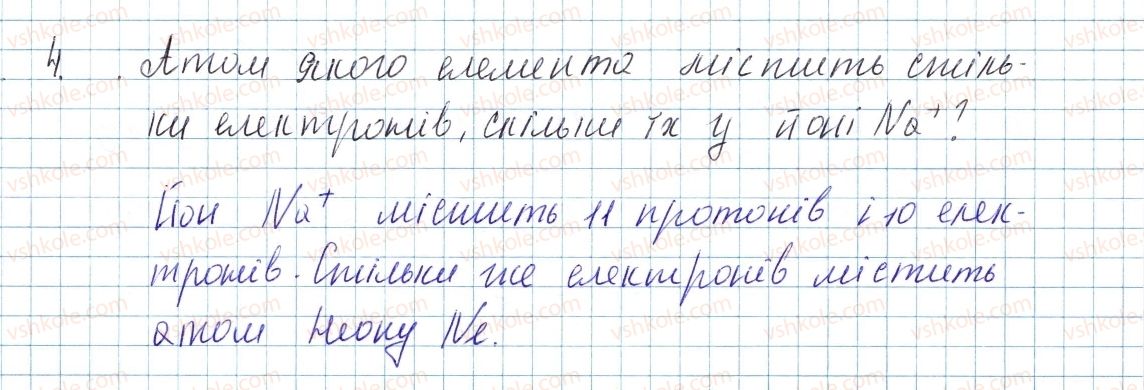 4. Атом якого елемента містить стіль-
ки електронів, скільки їх у йоні Na⁺?
Йон Na⁺ містить 11 протонів і 10 елек-
тронів. Стільки же електронів містить
атом Неону Ne.